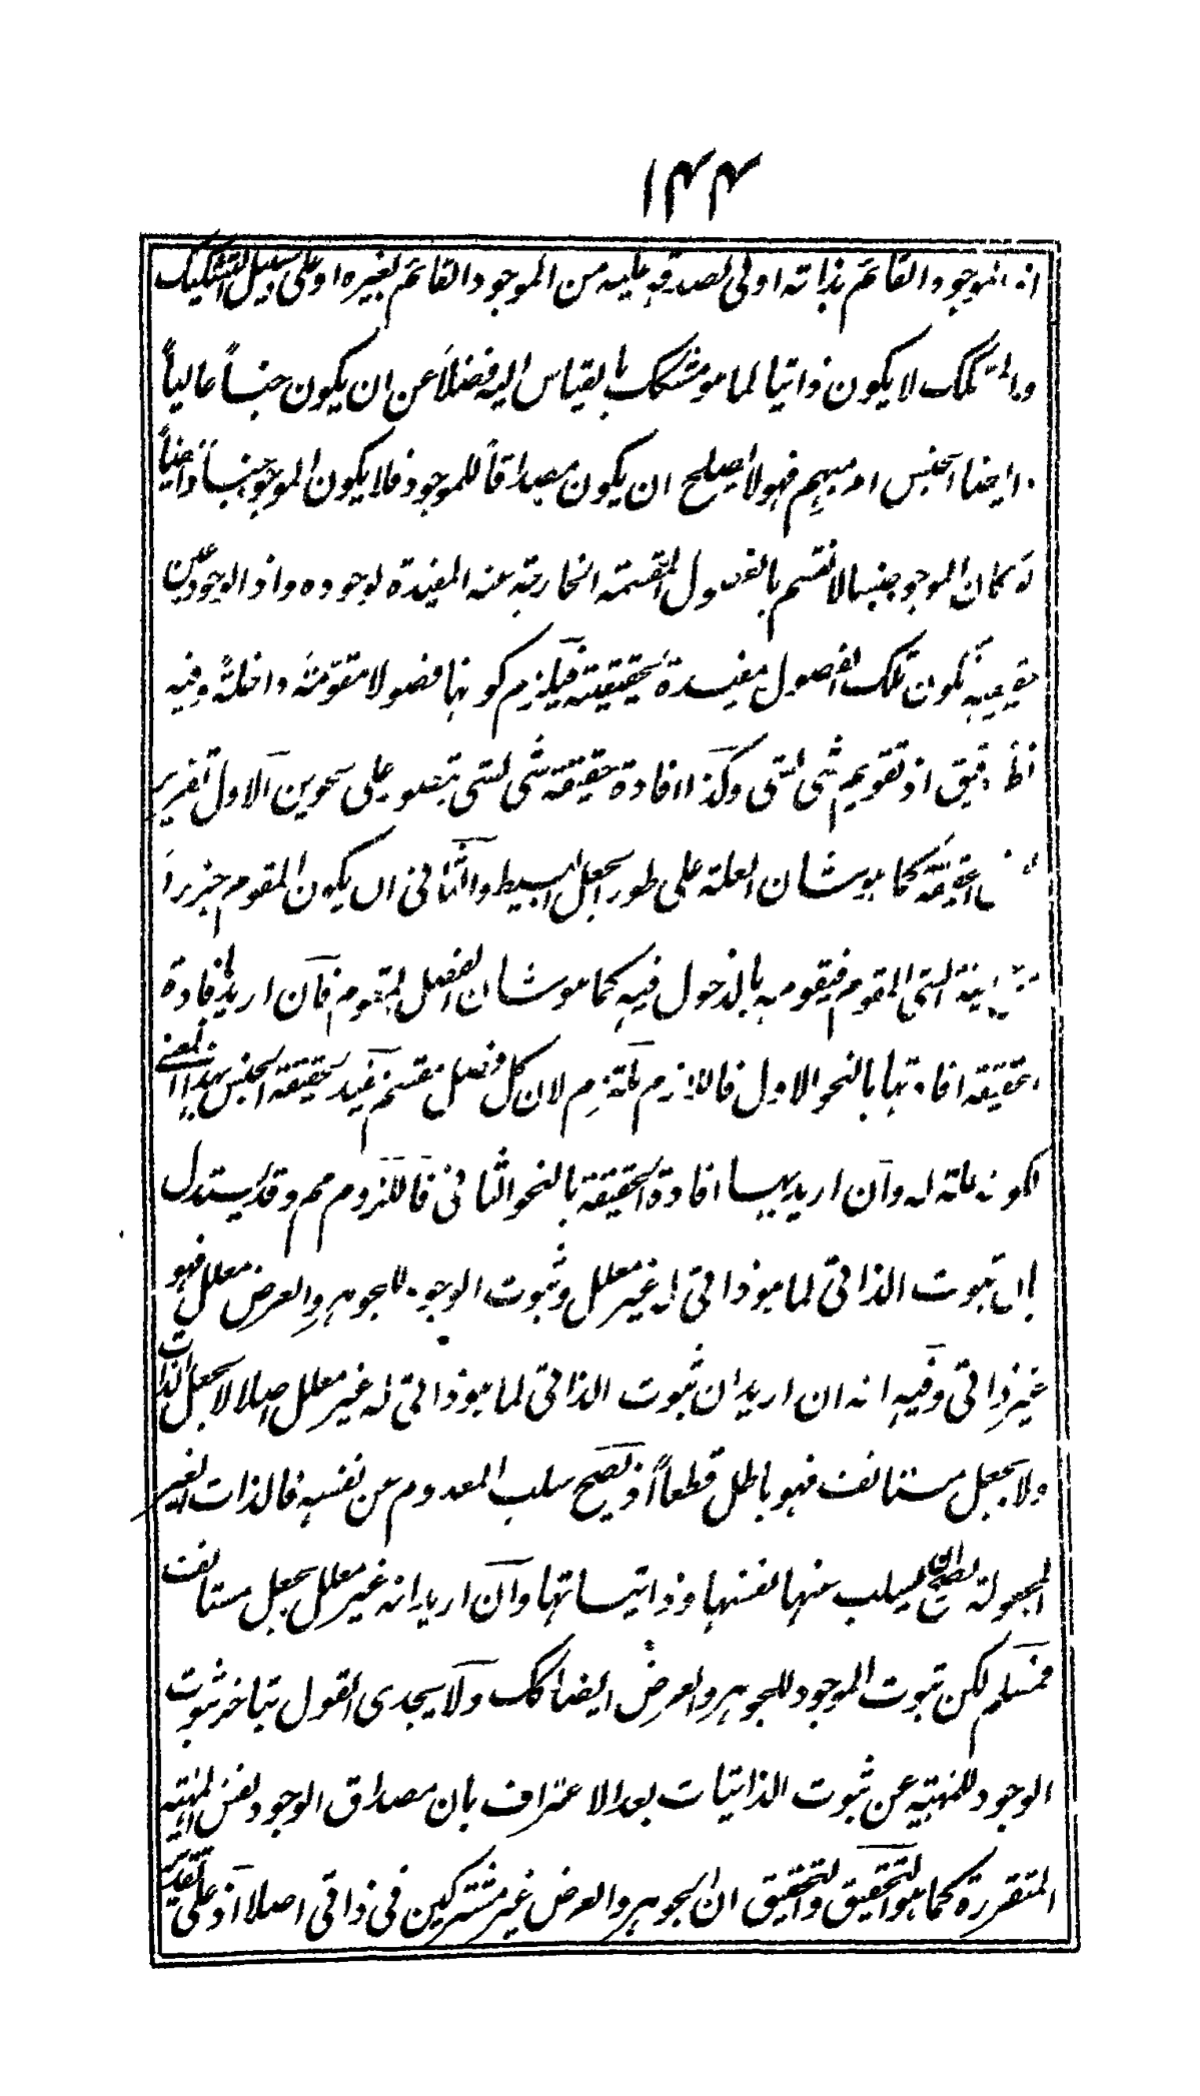 ۱۴۴
اذ الموجود القائم بذاته اولی لصدقہ علیہ من الموجود القائم بغیرہ او علی سبیل التشکیک
والمشکک لا یکون ذاتیا لما ہو مشکک بالقیاس الیہ فضلاً عن ان یکون جنساً عالیاً
وایضا الجنس امر مبہم فہو لا یصلح ان یکون مصداقاً للموجود فلا یکون الموجود جنساً وایضاً
لو کان الموجود جنسا لانقسم بالفصول المقسمۃ الخارجۃ عنہ المفیدۃ لوجودہ واذ الوجود عین
حقیقیۃ تکون تلک الفصول مفیدۃ لحقیقیتہ فیلزم کونہا فصولا مقوّمۃً داخلۃً وفیہ
نظر دقیق اذ تقویم شی لشی وکذا افادۃ حقیقۃ شی لشی یتصور علی نحوین الاول تقریر
الحقیقۃ کما ہو شان العلۃ علی طور الجعل البسیط والثانی ان یکون المقوم جزءً
الشی المقوم فیقومہ بالدخول فیہ کما ہو شان الفصل المقوم فان ارید بافادۃ
الحقیقۃ افادتہا بالنحو الاول فاللازم ملتزم لان کل فصل مقسم یفید حقیقۃ الجنس بہذا المعنی
لکونہ علۃ لہ وان ارید بہا افادۃ الحقیقۃ بالنحو الثانی فاللزوم مم وقد یستدل
بان ثبوت الذاتی لما ہو ذاتی لہ غیر معلل وثبوت الوجود للجوہر والعرض معلل فہو
غیر ذاتی وفیہ انہ ان ارید ان ثبوت الذاتی لما ہو ذاتی لہ غیر معلل اصلا لا بجعل الذات
ولا بجعل مستانف فہو باطل قطعاً اذ یصح سلب المعدوم عن نفسہ فالذات الغیر
المجعولۃ یصح ان یسلب عنہا نفسہا وذاتیاتہا وان ارید انہ غیر معلل بجعل مستانف
فمسلم لکن ثبوت الموجود للجوہر والعرض ایضا کک ولا یجدی القول بتاخر ثبوت
الوجود للمہیۃ عن ثبوت الذاتیات بعد الاعتراف بان مصداق الوجود نفس المہیۃ
المتقررۃ کما ہو التحقیق والتحقیق ان الجوہر والعرض غیر مشترکین فی ذاتی اصلا اذ علی تقدیر